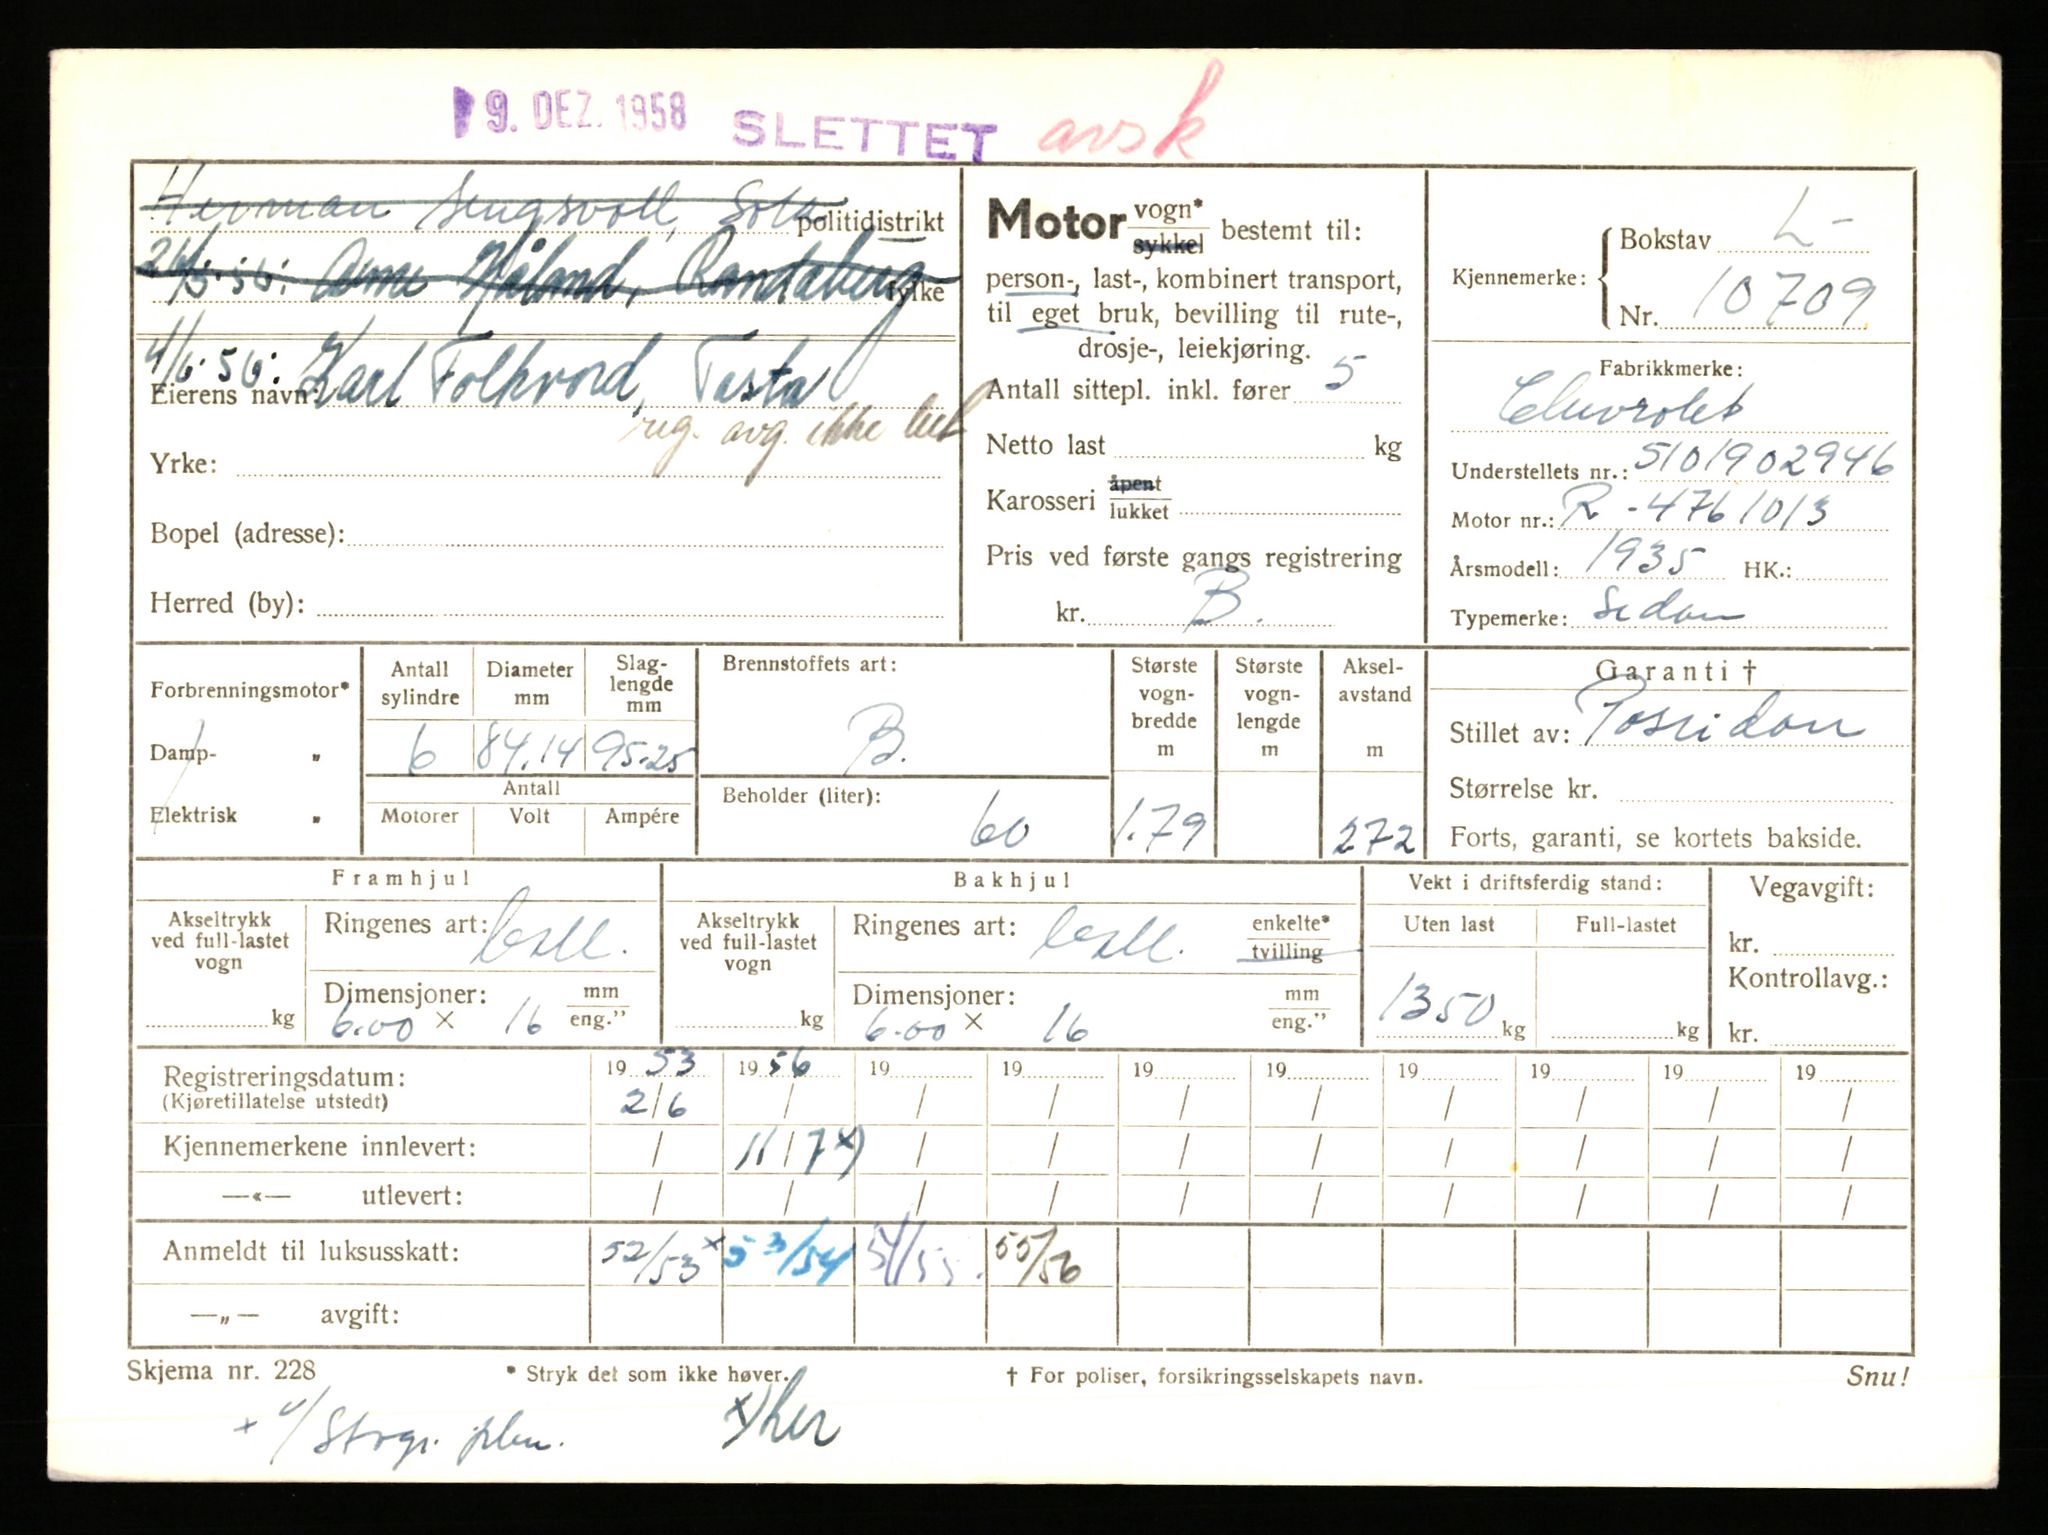 9. DEZ. 1958 SLETTET avsk
Herman Sola politidistrikt
Arne Håland, Randaberg fylke
4/6.56. Karl Folkvord, Tasta
Eierens navn:
reg. avg. ikke bet
Yrke:
Bopel (adresse):
Herred (by):
Motor vogn* sykkel bestemt til:
person-, last-, kombinert transport,
til eget bruk, bevilling til rute-,
drosje-, leiekjøring.
Antall sittepl. inkl. fører 5
Netto last kg
Karosseri åpent lukket
Pris ved første gangs registrering
kr. B.
Kjennemerke: Bokstav L-
Nr. 10709
Fabrikkmerke:
Chevrolet
Understellets nr.: 5101902946
Motor nr.: R-4761013
Årsmodell: 1935 HK.:
Typemerke: Sedan
Forbrenningsmotor*
Damp- „
Elektrisk „
Antall sylindre 6
Diameter mm 84.14
Slag-lengde mm 95.25
Antall
Motorer Volt Ampére
Brennstoffets art:
B.
Beholder (liter): 60
Største vogn-bredde m 1.79
Største vogn-lengde m
Aksel-avstand m 272
Garanti †
Stillet av: Poseidon
Størrelse kr.
Forts, garanti, se kortets bakside.
Framhjul
Akseltrykk ved full-lastet vogn kg
Ringenes art:
Dimensjoner: mm eng."
6.00 x 16
Bakhjul
Akseltrykk ved full-lastet vogn kg
Ringenes art: enkelte* tvilling
Dimensjoner: mm eng."
6.00 x 16
Vekt i driftsferdig stand:
Uten last 1350 kg
Full-lastet kg
Vegavgift:
kr.
Kontrollavg.:
kr.
Registreringsdatum: 19 53 19 56 19 19 19 19 19 19 19 19
(Kjøretillatelse utstedt) 2/6 / / / / / / / / /
Kjennemerkene innlevert: / 11/7 x) / / / / / / / /
—«— utlevert: / / / / / / / / / /
Anmeldt til luksusskatt: 52/53 x 53/54 54/55. 55/56
—„— avgift:
Skjema nr. 228 * Stryk det som ikke høver. † For poliser, forsikringsselskapets navn. Snu!
x)her